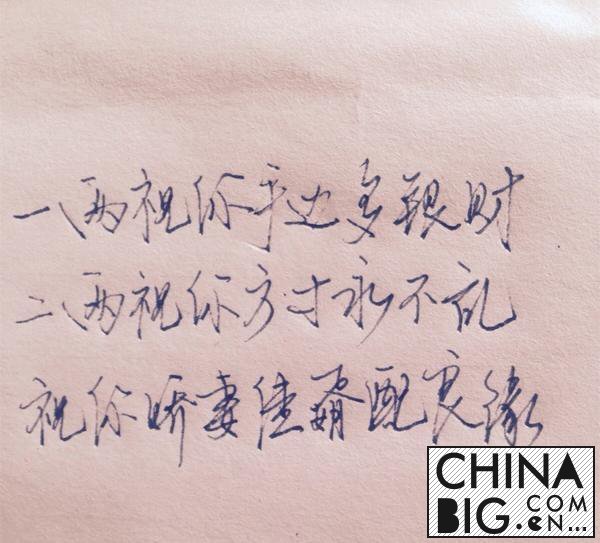 一、两祝你手边多银财
二、两祝你方寸永不乱
祝你娇妻佳婿配良缘
CHINA
BIG
.COM
.CN...